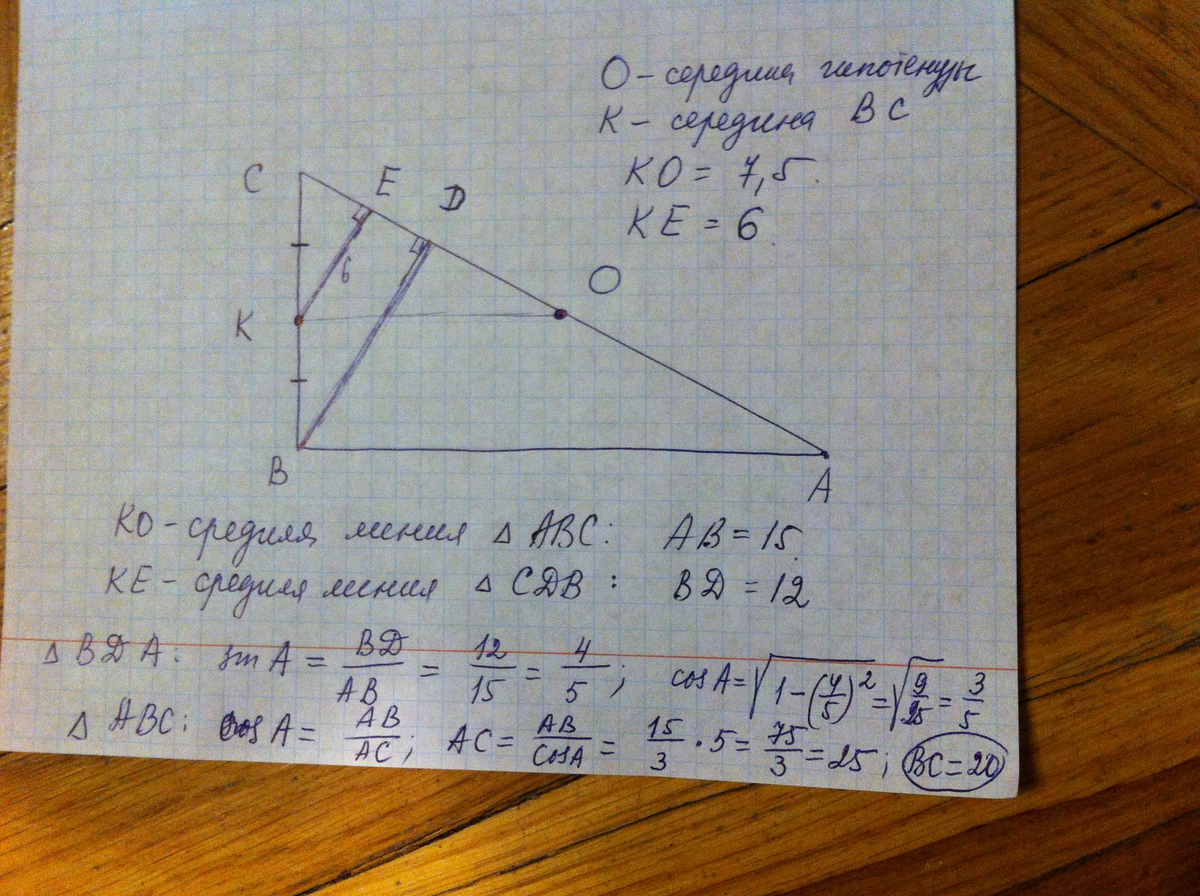 O - середина гипотенузы
K - середина BC
KO = 7,5.
KE = 6.
C
E
D
6
O
K
B
A
KO - средняя линия △ ABC: AB = 15.
KE - средняя линия △ CDB : BD = 12
△ BDA: sin A = BD/AB = 12/15 = 4/5 ; cos A = √(1-(4/5)²) = √(9/25) = 3/5
△ ABC: cos A = AB/AC ; AC = AB/cos A = 15/3 · 5 = 75/3 = 25 ; BC = 20